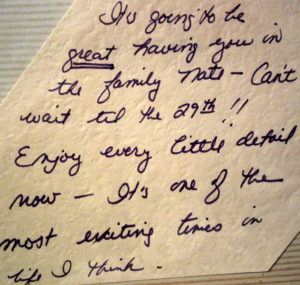 It's going to be
great having you in
the family Nate - Can't
wait til the 29th!!
Enjoy every little detail
now - It's one of the
most exciting times in
life I think -